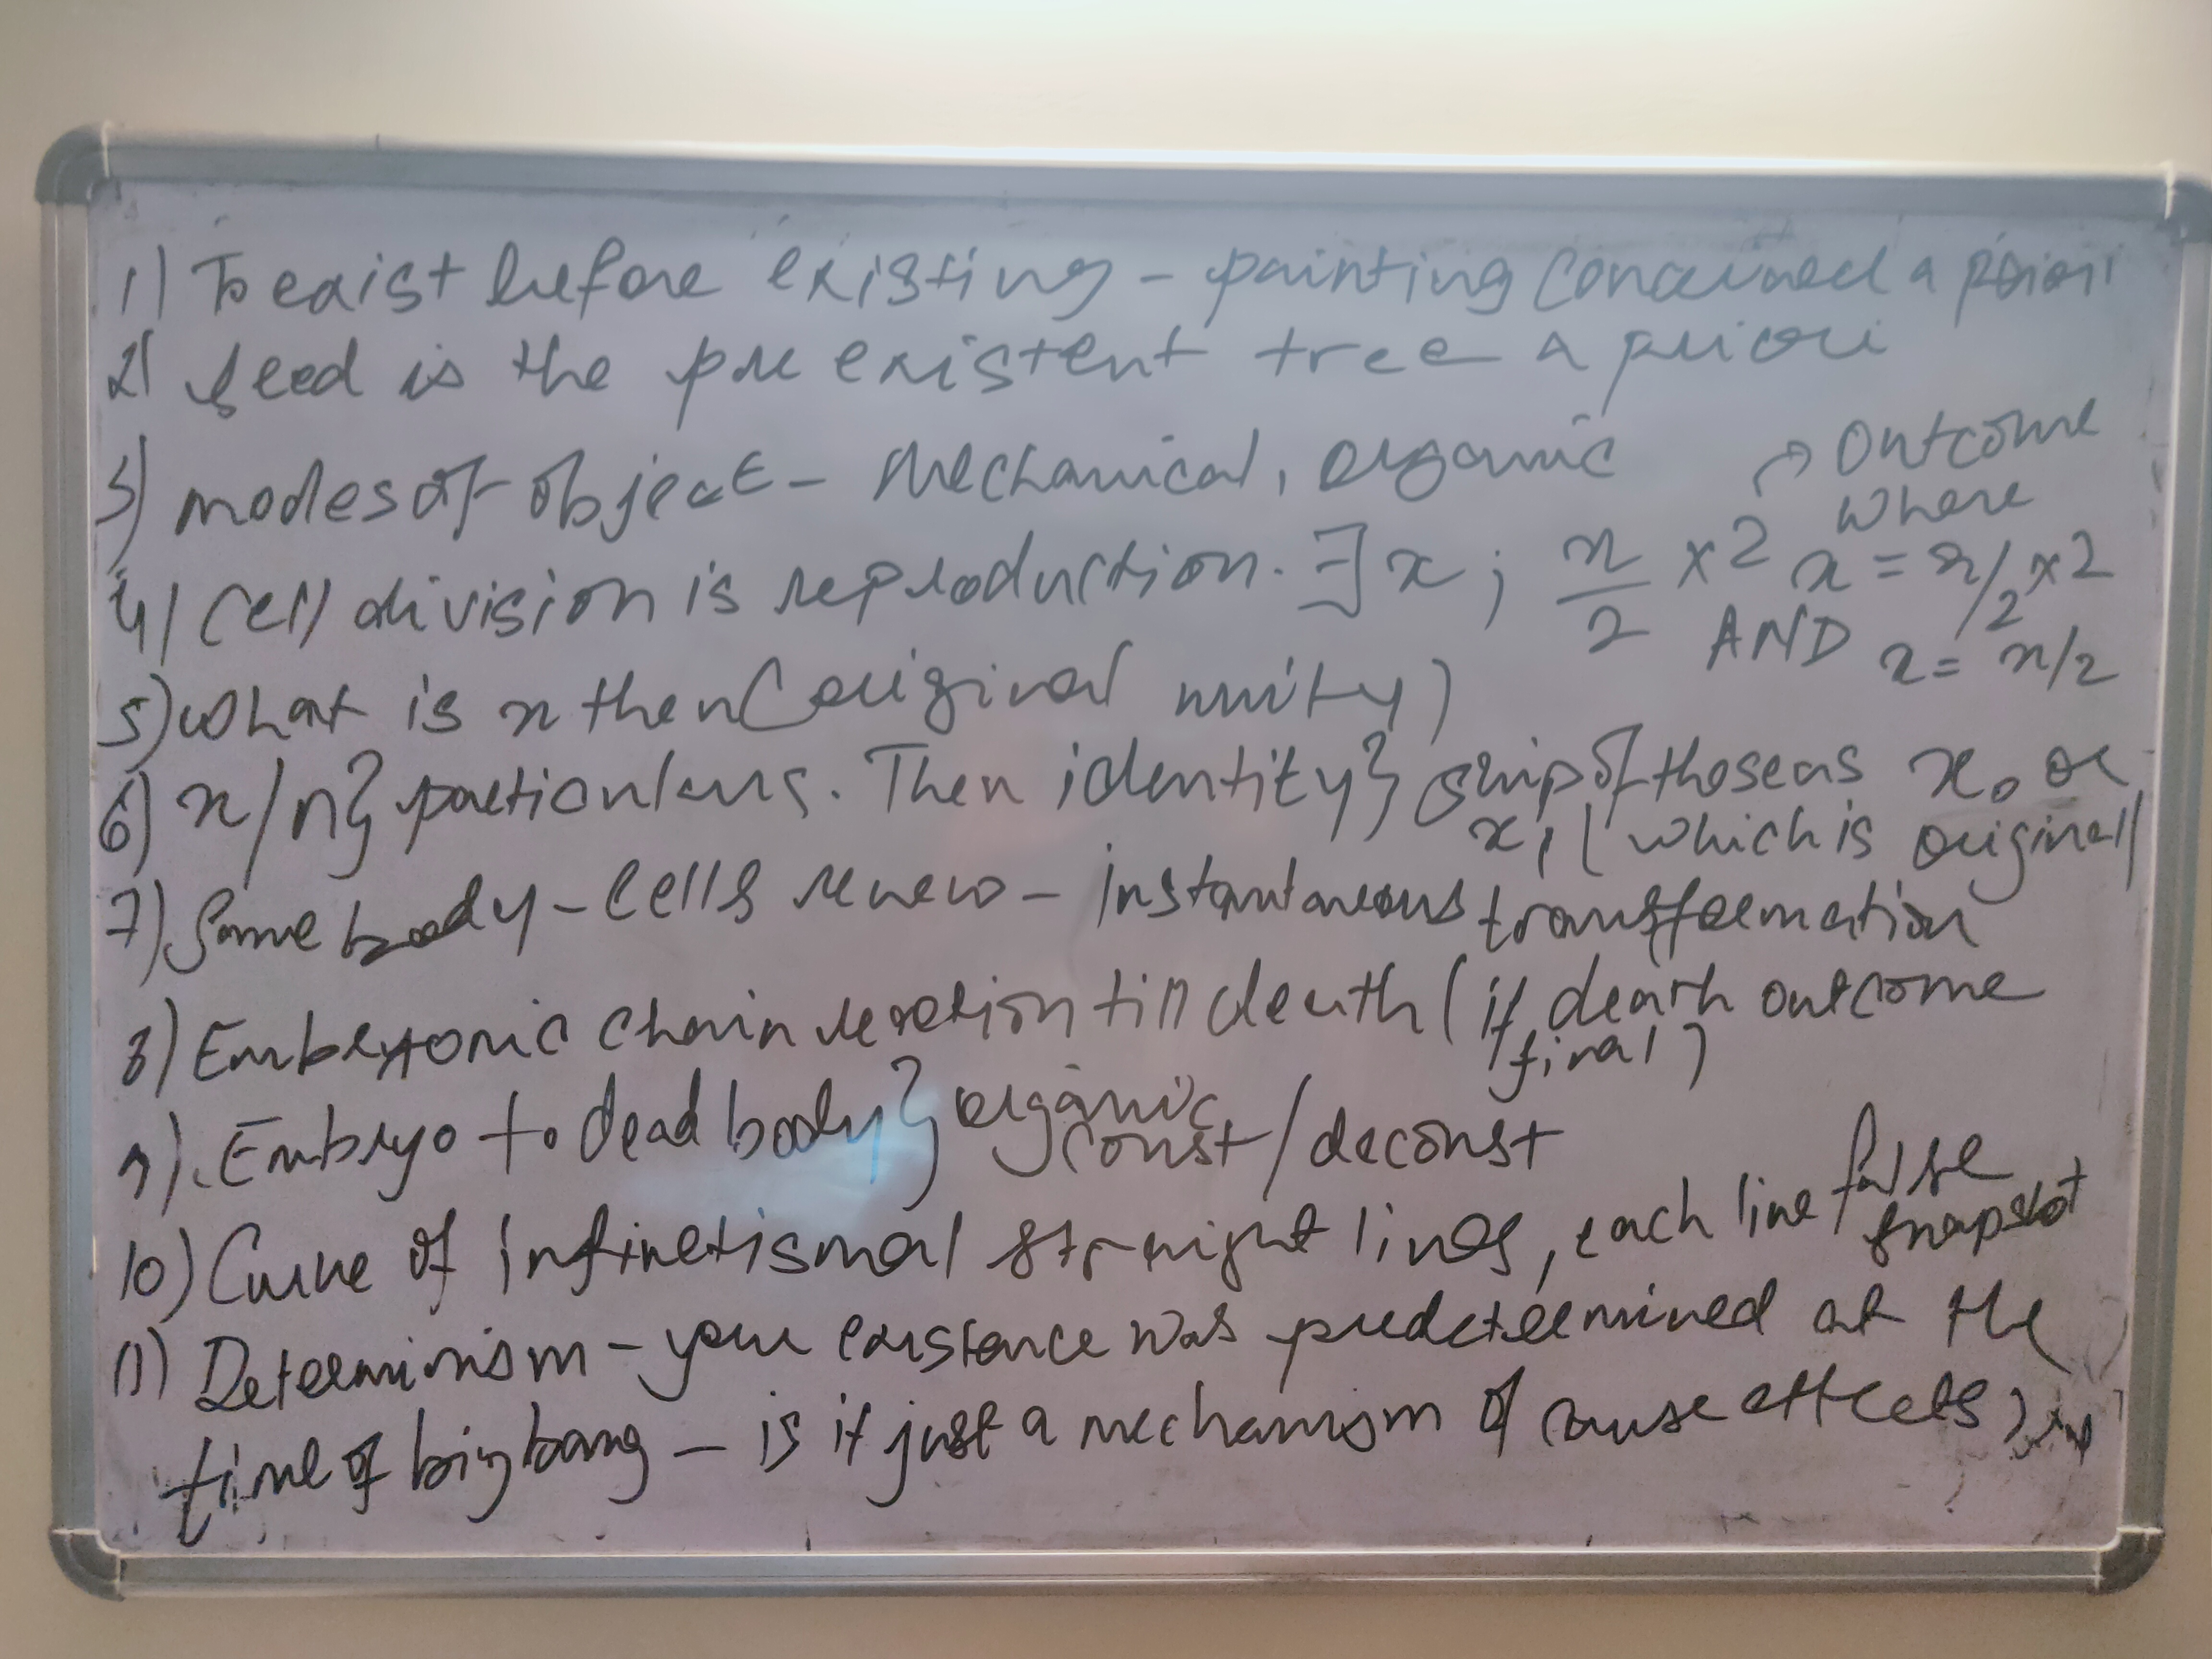 1) To exist before existing - painting conceived a priori
2) Seed is the pre existent tree a priori
3) modes of object - Mechanical, organic
4) Cell division is reproduction. ∃ x ; x/2 x 2 → Outcome where x = x/2 x 2 AND x = x/2
5) What is x then (original unity)
6) x/n} particulars. Then identity} ship of theseus x₀ or x₁ (which is original)
7) Same body - Cells renew - instantaneous transformation
8) Embryonic chain reaction till death (if death outcome final)
9) Embryo to dead body} organic const/deconst
10) Curve of infinetismal straight lines, each line false snapshot
11) Determinism - your existance was predetermined at the
time of big bang - is it just a mechanism of cause effects